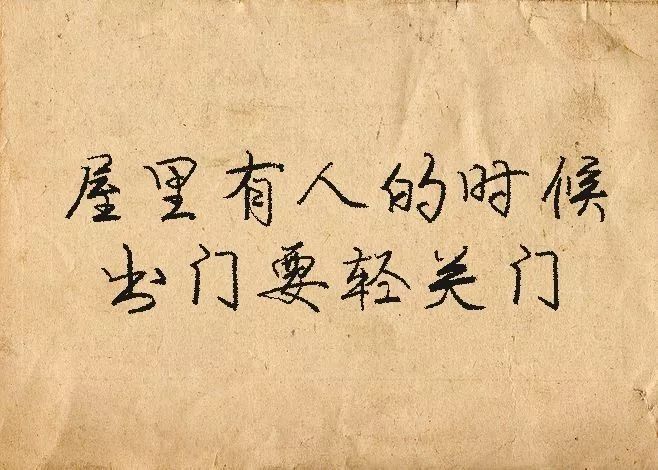 屋里有人的时候
出门要轻关门